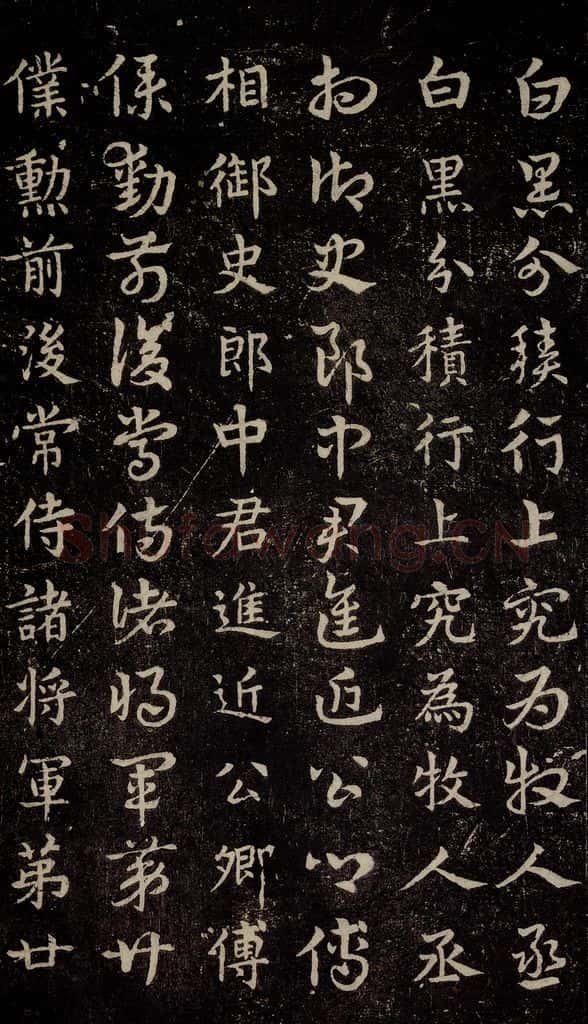 白黑分積行上究為牧人丞
白黑分積行上究為牧人丞
相御史郎中君進近公卿傅
相御史郎中君進近公卿傅
僕勳前後常侍諸將軍第廿
僕勳前後常侍諸将軍第廿
Shufawang.CN